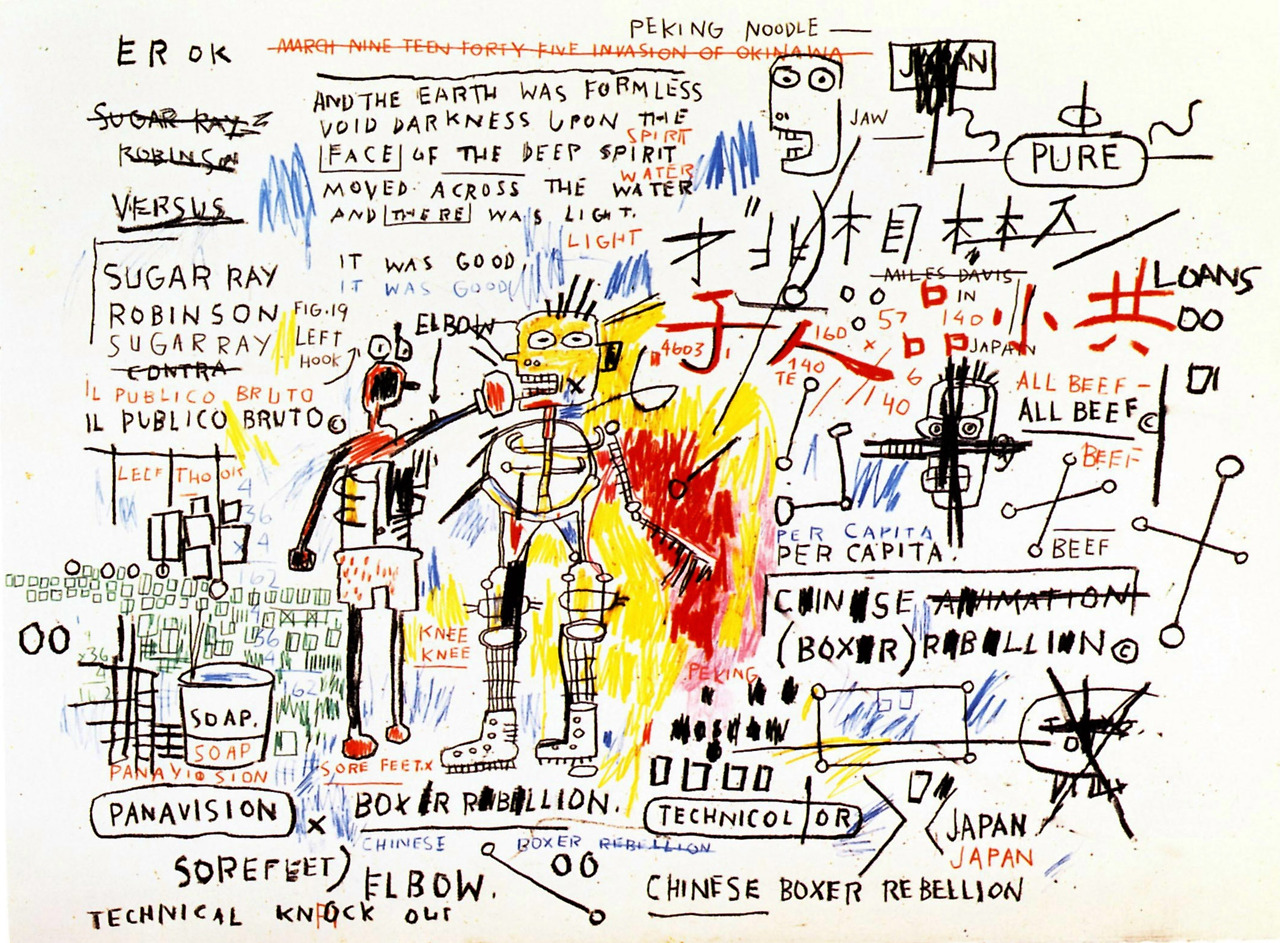 PEKING NOODLE —
EROK
MARCH NINE TEEN FORTY FIVE INVASION OF OKINAWA
JAPAN
SUGAR RAY
ROBINSON
VERSUS
AND THE EARTH WAS FORMLESS
VOID DARKNESS UPON THE
SPIRIT
FACE OF THE DEEP SPIRIT
WATER
MOVED ACROSS THE WATER
AND THERE WAS LIGHT.
LIGHT
IT WAS GOOD
IT WAS GOOD
JAW
PURE
MILES DAVIS
IN
JAPAN
LOANS
OO
人品小共
4603
160
57
140
x
6
140
TE
40
SUGAR RAY
ROBINSON
SUGAR RAY
CONTRA
IL PUBLICO BRUTO
IL PUBLICO BRUTO©
FIG.19
LEFT
HOOK
ELBOW
X
ALL BEEF –
ALL BEEF©
BEEF
BEEF
PER CAPITA
PER CAPITA.
CHINESE ANIMATION
(BOXER) REBELLION©
4
36
x 4
162
4
36
4
162
x36
4
162
OO
KNEE
KNEE
SOAP.
SOAP
PEKING
MOSKOW
PANAVISION
PANAVISION
SORE FEET.X
X
BOXER REBELLION.
CHINESE BOXER REBELLION
TECHNICOLOR
JAPAN
JAPAN
SOREFEET)
ELBOW.
OO
TECHNICAL KNOCK OUT
CHINESE BOXER REBELLION